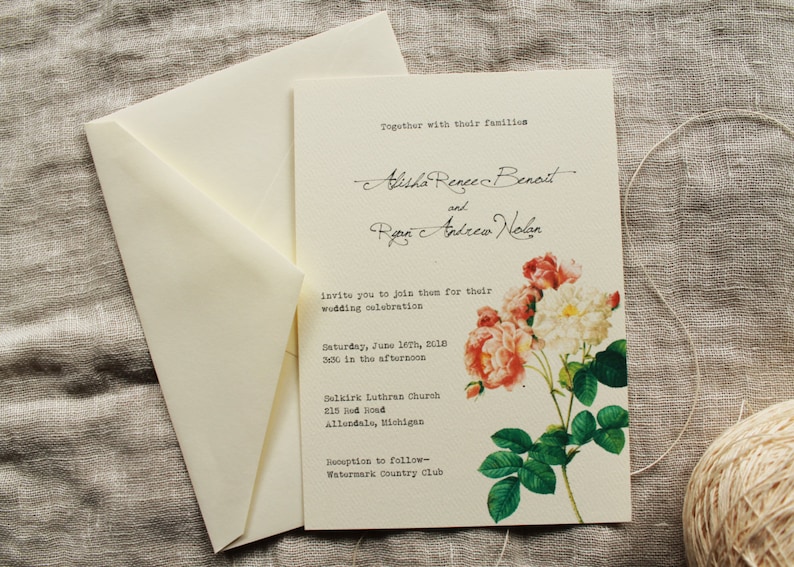 Together with their families
Alisha Renee Benoit
and
Ryan Andrew Nolan
invite you to join them for their
wedding celebration
Saturday, June 16th, 2018
3:30 in the afternoon
Selkirk Luthran Church
215 Red Road
Allendale, Michigan
Reception to follow—
Watermark Country Club